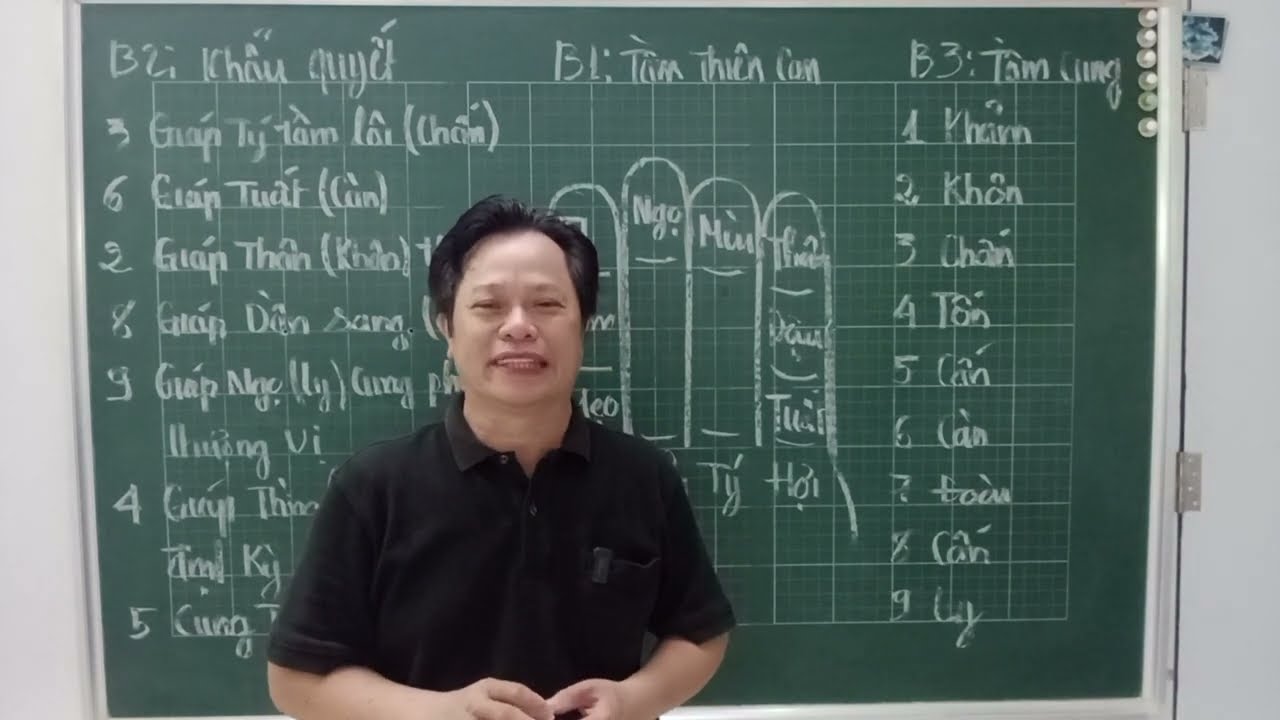 B2: Khẩu quyết
3 Giáp Tý tầm lôi (Chấn)
6 Giáp Tuất (Càn)
2 Giáp Thân (Khôn)
8 Giáp Dần sang
9 Giáp Ngọ (ly) Cung
thượng vị
4 Giáp
Kỳ
5 Cung
B1: Tầm thiên Can
Ngọ
Mùi
Thân
Dậu
Tuất
Tý Hợi
B3: Tầm Cung
1 Khảm
2 Khôn
3 Chấn
4 Tốn
5 Cấn
6 Càn
7 Đoài
8 Cấn
9 Ly